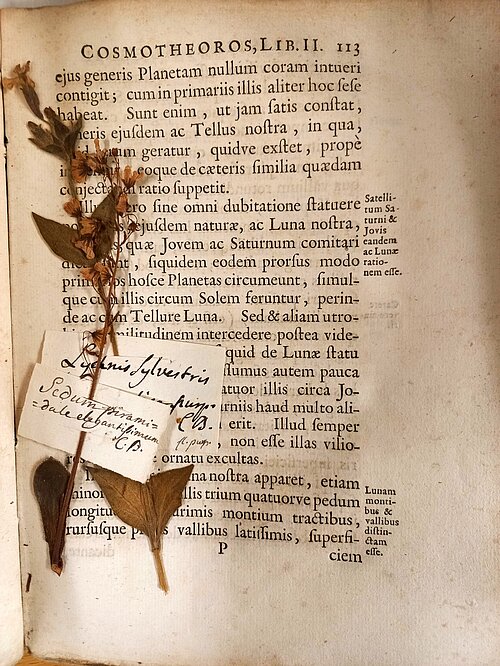 COSMOTHEOROS, LIB. II. 113
ejus generis Planetam nullum coram intueri
contigit; cum in primariis illis aliter hoc sese
habeat. Sunt enim, ut jam satis constat,
neris ejusdem ac Tellus nostra, in qua,
um geratur, quidve exstet, propè
eoque de cæteris similia quædam
conjectandi ratio suppetit.
ro sine omni dubitatione statuere
ejusdem naturæ, ac Luna nostra,
quæ Jovem ac Saturnum comitari
nt, siquidem eodem prorsus modo
prima os hosce Planetas circumeunt, simul-
que cum illis circum Solem feruntur, perin-
de ac cum Tellure Luna. Sed & aliam utro-
militudinem intercedere postea vide-
quid de Lunæ statu
sumus autem pauca
atuor illis circa Jo-
urniis haud multo ali-
erit. Illud semper
, non esse illas vilio-
ornatu excultas.
na nostra apparet, etiam
minor llis trium quatuorve pedum
longitu urimis montium tractibus,
rursusque vallibus latissimis, superfi-
P ciem
Satelli-
tum Sa-
turni &
Jovis
eandem
ac Lunæ
ratio-
nem esse.
Lunam
monti-
bus &
vallibus
distin-
ctam
esse.
Lychnis Sylvestris
purp.
C.B.
fl. purp.
Sedum pirami-
=dale elegantissimum
C.B.